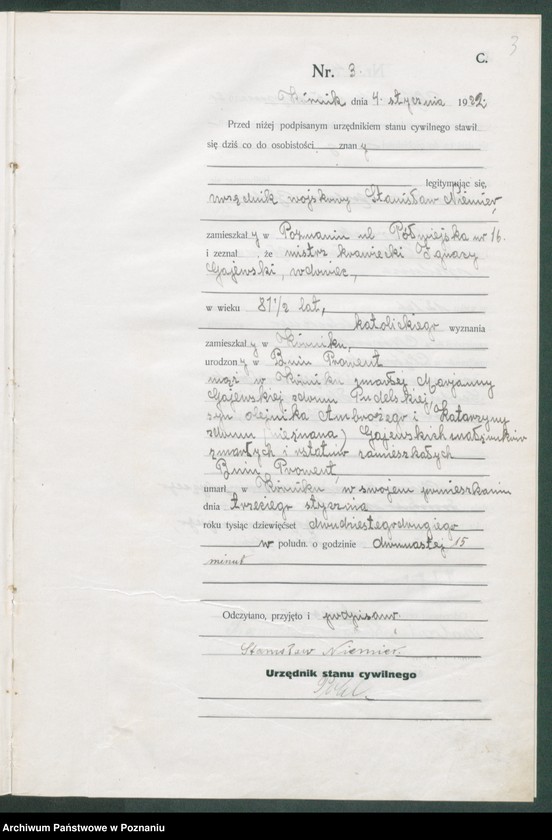 3
C.
Nr. 3
Kórnik dnia 4. stycznia 1922.
Przed niżej podpisanym urzędnikiem stanu cywilnego stawił
się dziś co do osobistości znany
legitymując się,
urzędnik wojskowy Stanisław Niemier,
zamieszkały w Poznaniu ul Półwiejska nr 16.
i zeznał, że mistrz krawiecki Ignacy
Gajewski, wdowiec,
w wieku 81 1/2 lat,
katolickiego wyznania
zamieszkały w Kórniku,
urodzony w Bnin Prowent
mąż w Kórniku zmarłej Marjanny
Gajewskiej z domu Pudelskiej,
syn olejnika Ambrożego i Katarzyny
z domu (nieznana) Gajewskich małżonków
zmarłych i ostatnio zamieszkałych
Bnin Prowent,
umarł w Kórniku w swojem pomieszkaniu
dnia trzeciego stycznia
roku tysiąc dziewięćset dwudziestegodrugiego
w połudn. o godzinie dwunastej 15
minut
Odczytano, przyjęto i podpisano.
Stanisław Niemier.
Urzędnik stanu cywilnego
Archiwum Państwowe w Poznaniu